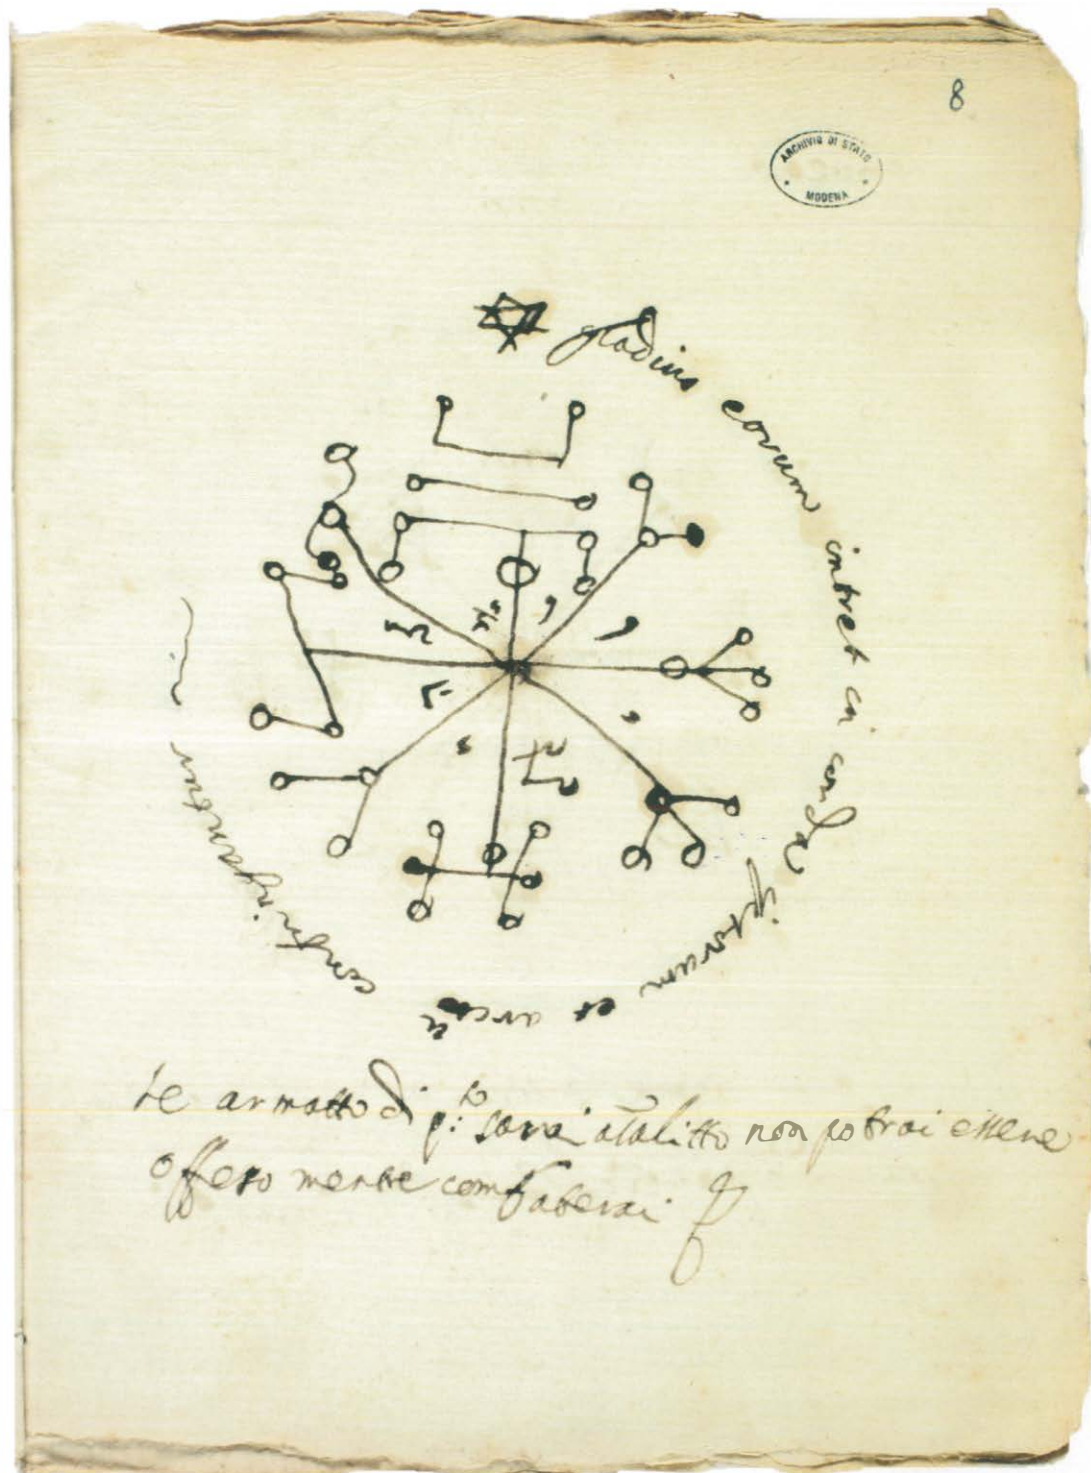 8
ARCHIVIO DI STATO
MODENA
gladius eorum intret in corda iptorum et arcu confringantur
se armatto di p:to sarai non potrai essere
offeso mentre combaterai